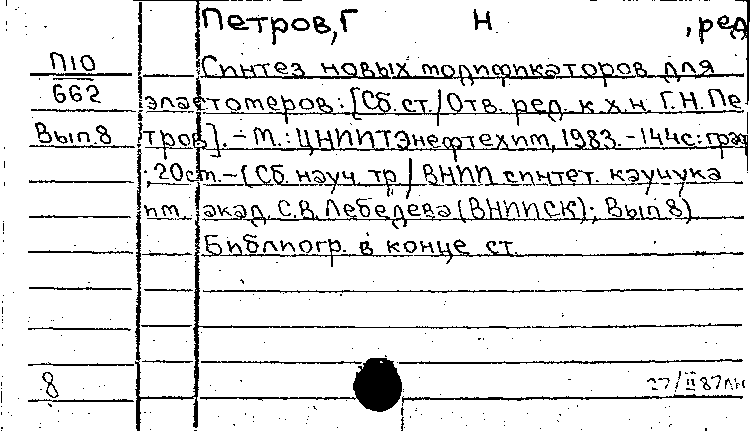 Петров, Г Н , ред
П10 Синтез новых модификаторов для
662 эластомеров: [Сб. ст. / Отв. ред. к. х. н. Г. Н. Пе
Вып. 8 тров]. – М.: ЦНИИТЭнефтехим, 1983. – 144с: граф
; 20см. – (Сб. науч. тр / ВНИИ синтет. каучука
им. акад. С. В. Лебедева (ВНИИСК); Вып 8)
Библиогр. в конце ст.
8 27/II 87